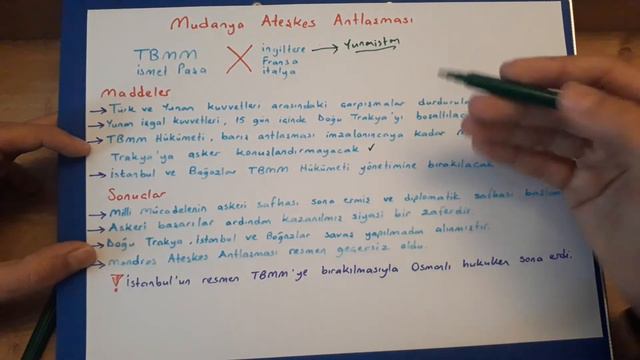 Mudanya Ateşkes Antlaşması
TBMM
ismet Paşa
ingiltere → Yunanistan
Fransa
italya
Maddeler
→ Türk ve Yunan kuvvetleri arasındaki çarpışmalar durdurula
→ Yunan işgal kuvvetleri, 15 gün içinde Doğu Trakya'yı boşaltılaca
→ TBMM Hükümeti, barış antlaşması imzalanıncaya kadar
Trakya'ya asker konuşlandırmayacak ✓
→ istanbul ve Boğazlar TBMM Hükümeti yönetimine bırakılacak
Sonuclar
→ Milli Mücadelenin askeri safhası sona ermiş ve diplomatik safhası başlam
→ Askeri başarılar ardından kazanılmış siyasi bir zaferdir.
→ Doğu Trakya, istanbul ve Boğazlar savaş yapılmadan alınmıştır.
→ Mondros Ateşkes Antlaşması resmen geçersiz oldu.
! istanbul'un resmen TBMM'ye bırakılmasıyla Osmanlı hukuken sona erdi.